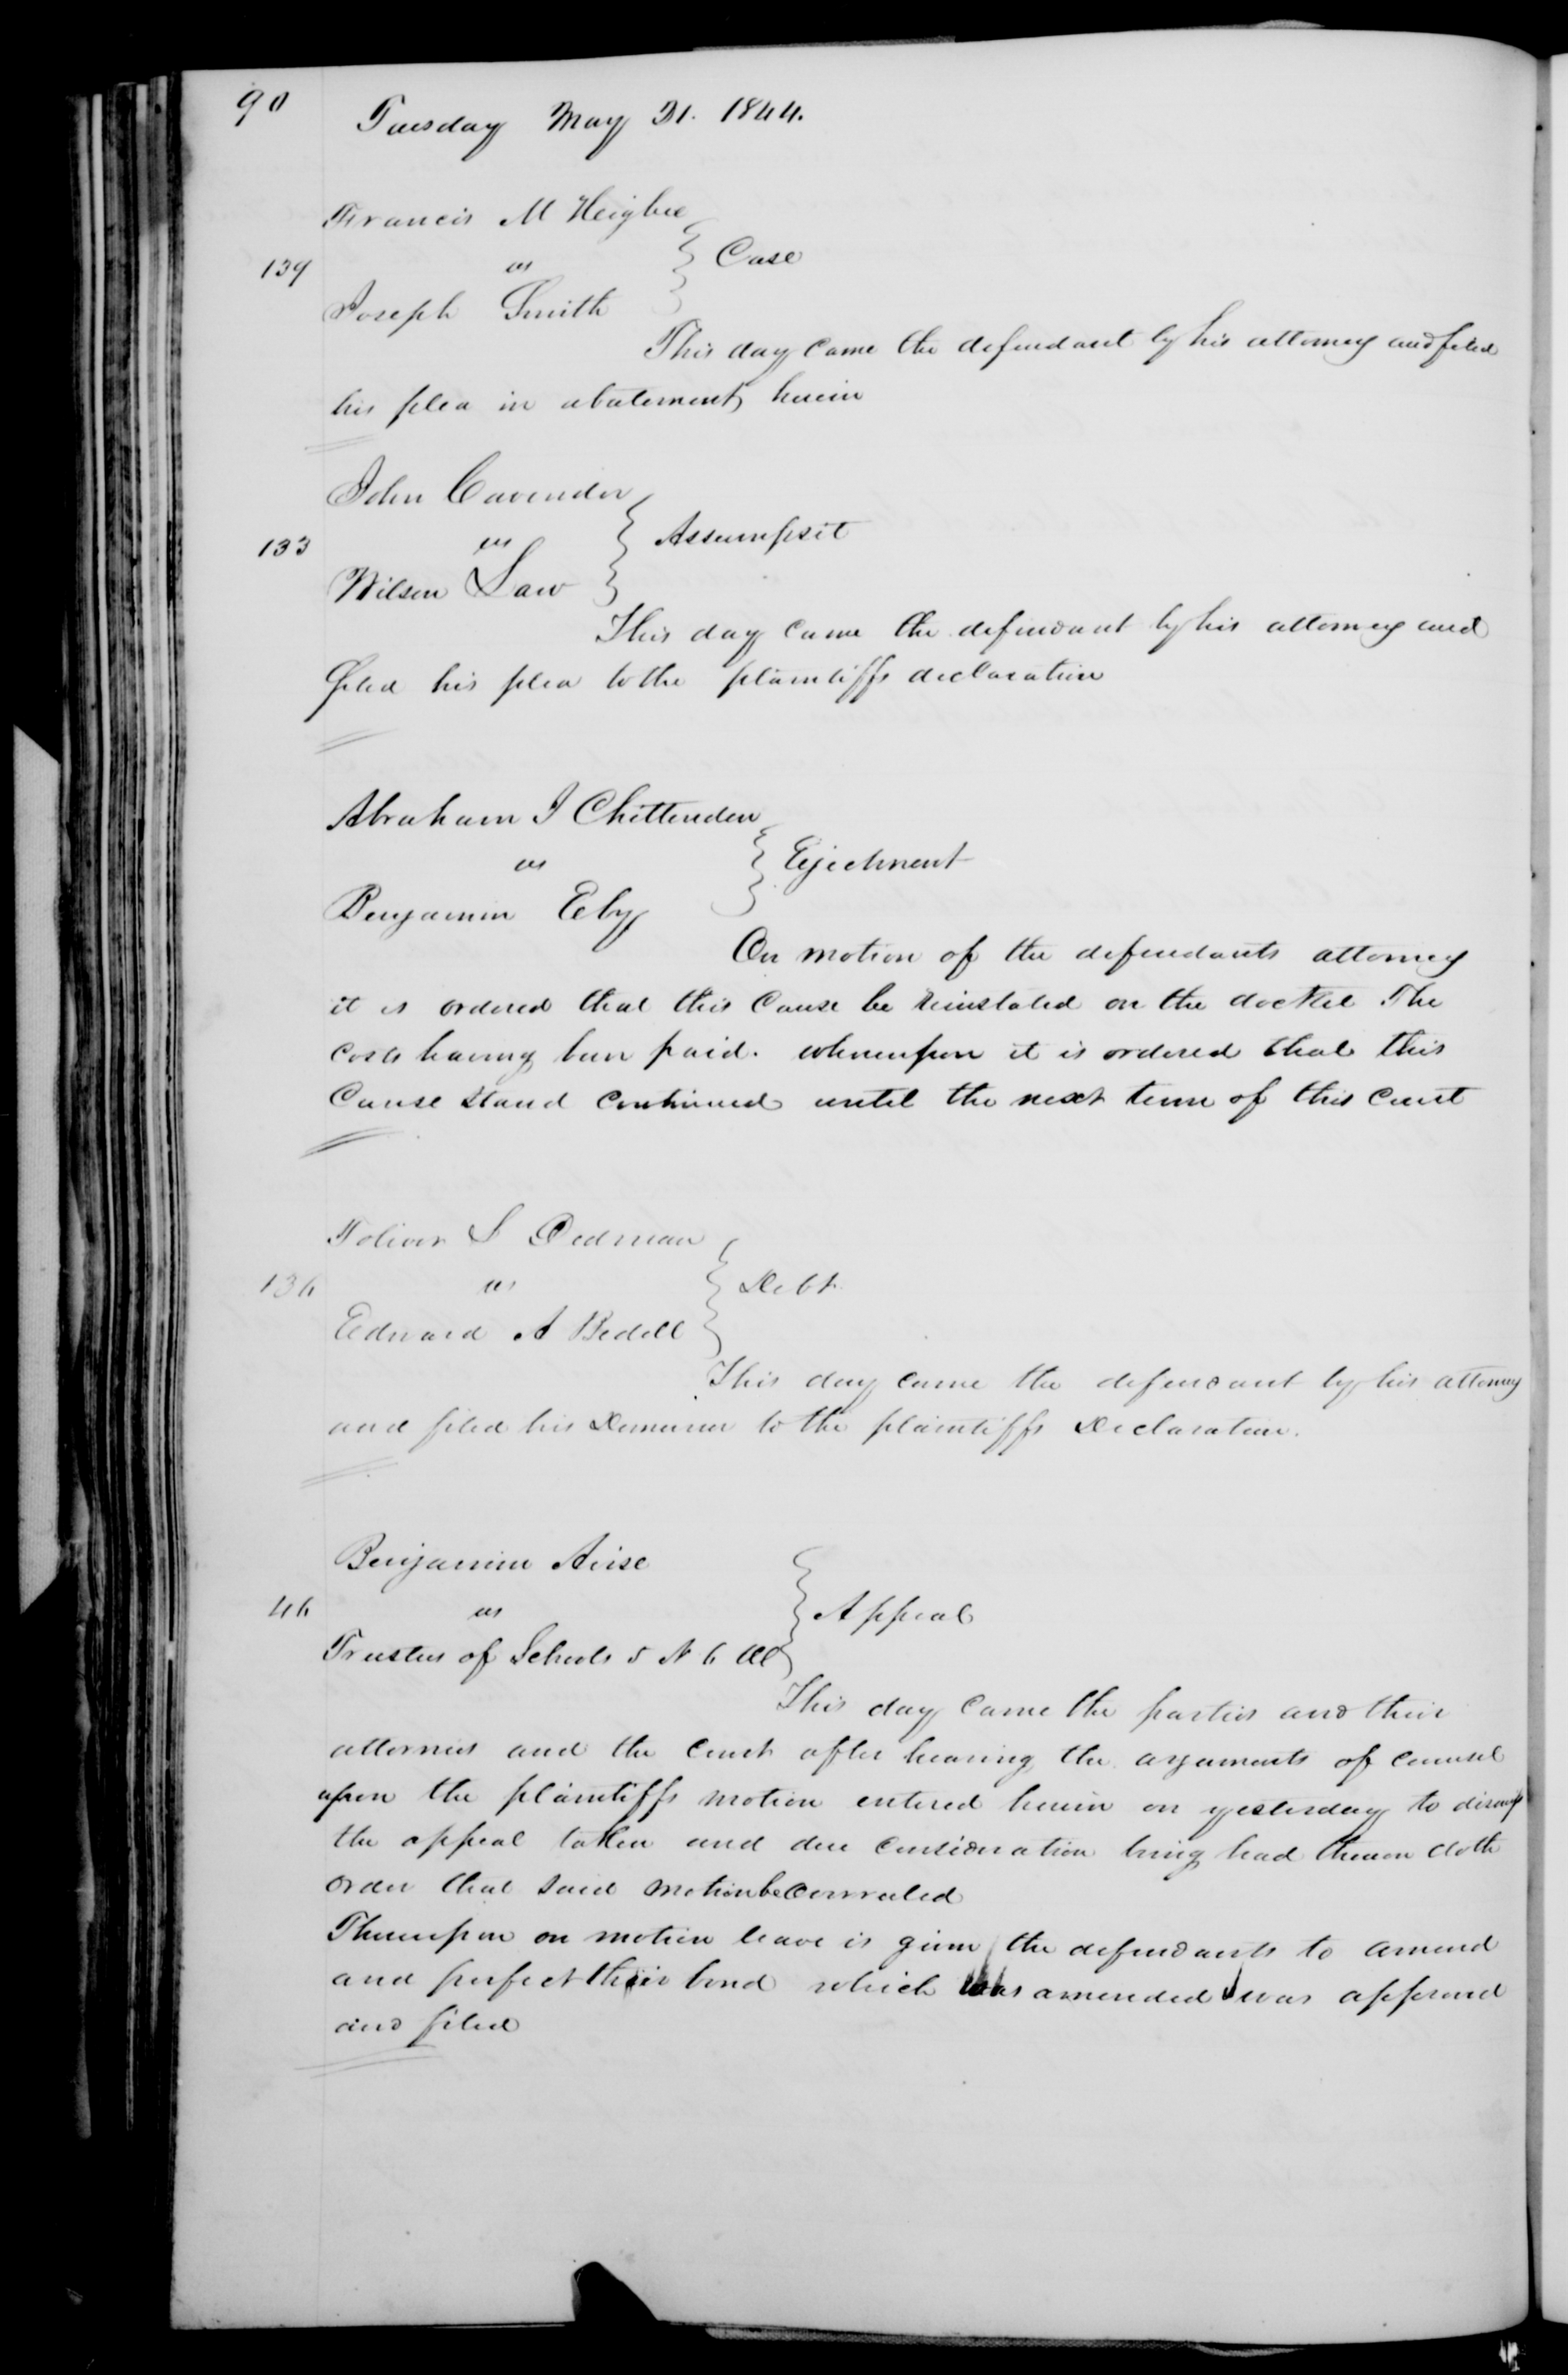 90
Tuesday May 21. 1844.
Francis M Heigbee
139 vs } Case
Joseph Smith
This day came the defendant by his attorney and filed
his plea in abatement herein
John Cavender
133 vs } Assumpsit
Wilson Law
This day came the defendant by his attorney and
filed his plea to the plaintiffs declaration
Abraham I Chittenden
vs } Ejectment
Benjamin Eby
On motion of the defendants attorney
it is ordered that this Cause be reinstated on the docket The
costs having been paid. whereupon it is ordered that this
Cause stand continued until the next term of this Court
Toliver S Dedman
136 vs } Debt
Edward A Bedell
This day came the defendant by his attorney
and filed his Demurrer to the plaintiffs Declaration.
Benjamin Avise
46 vs } Appeal
Trustees of Schools 5 N 6 W
This day came the parties and their
attornies and the Court after hearing the arguments of counsel
upon the plaintiffs motion entered herein on yesterday to dismiss
the appeal taken and due consideration being had thereon doth
order that said motion be overruled
Thereupon on motion leave is given the defendants to amend
and perfect their bond which as amended was approved
and filed